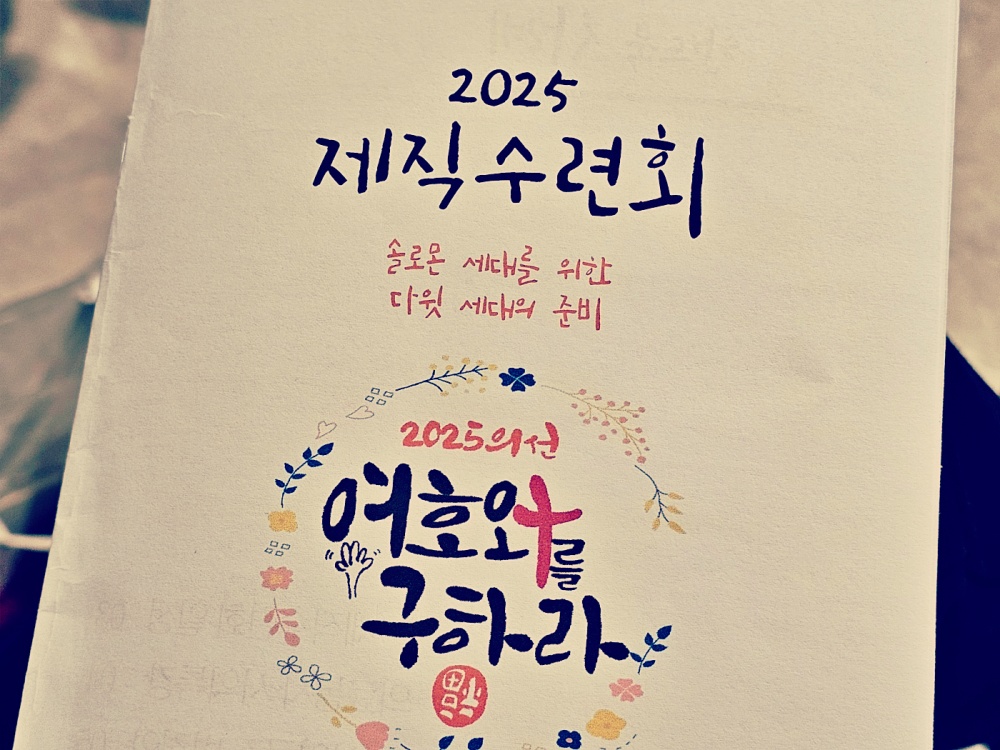 2025
제직수련회
솔로몬 세대를 위한
다윗 세대의 준비
2025의선
여호와를
구하라
福